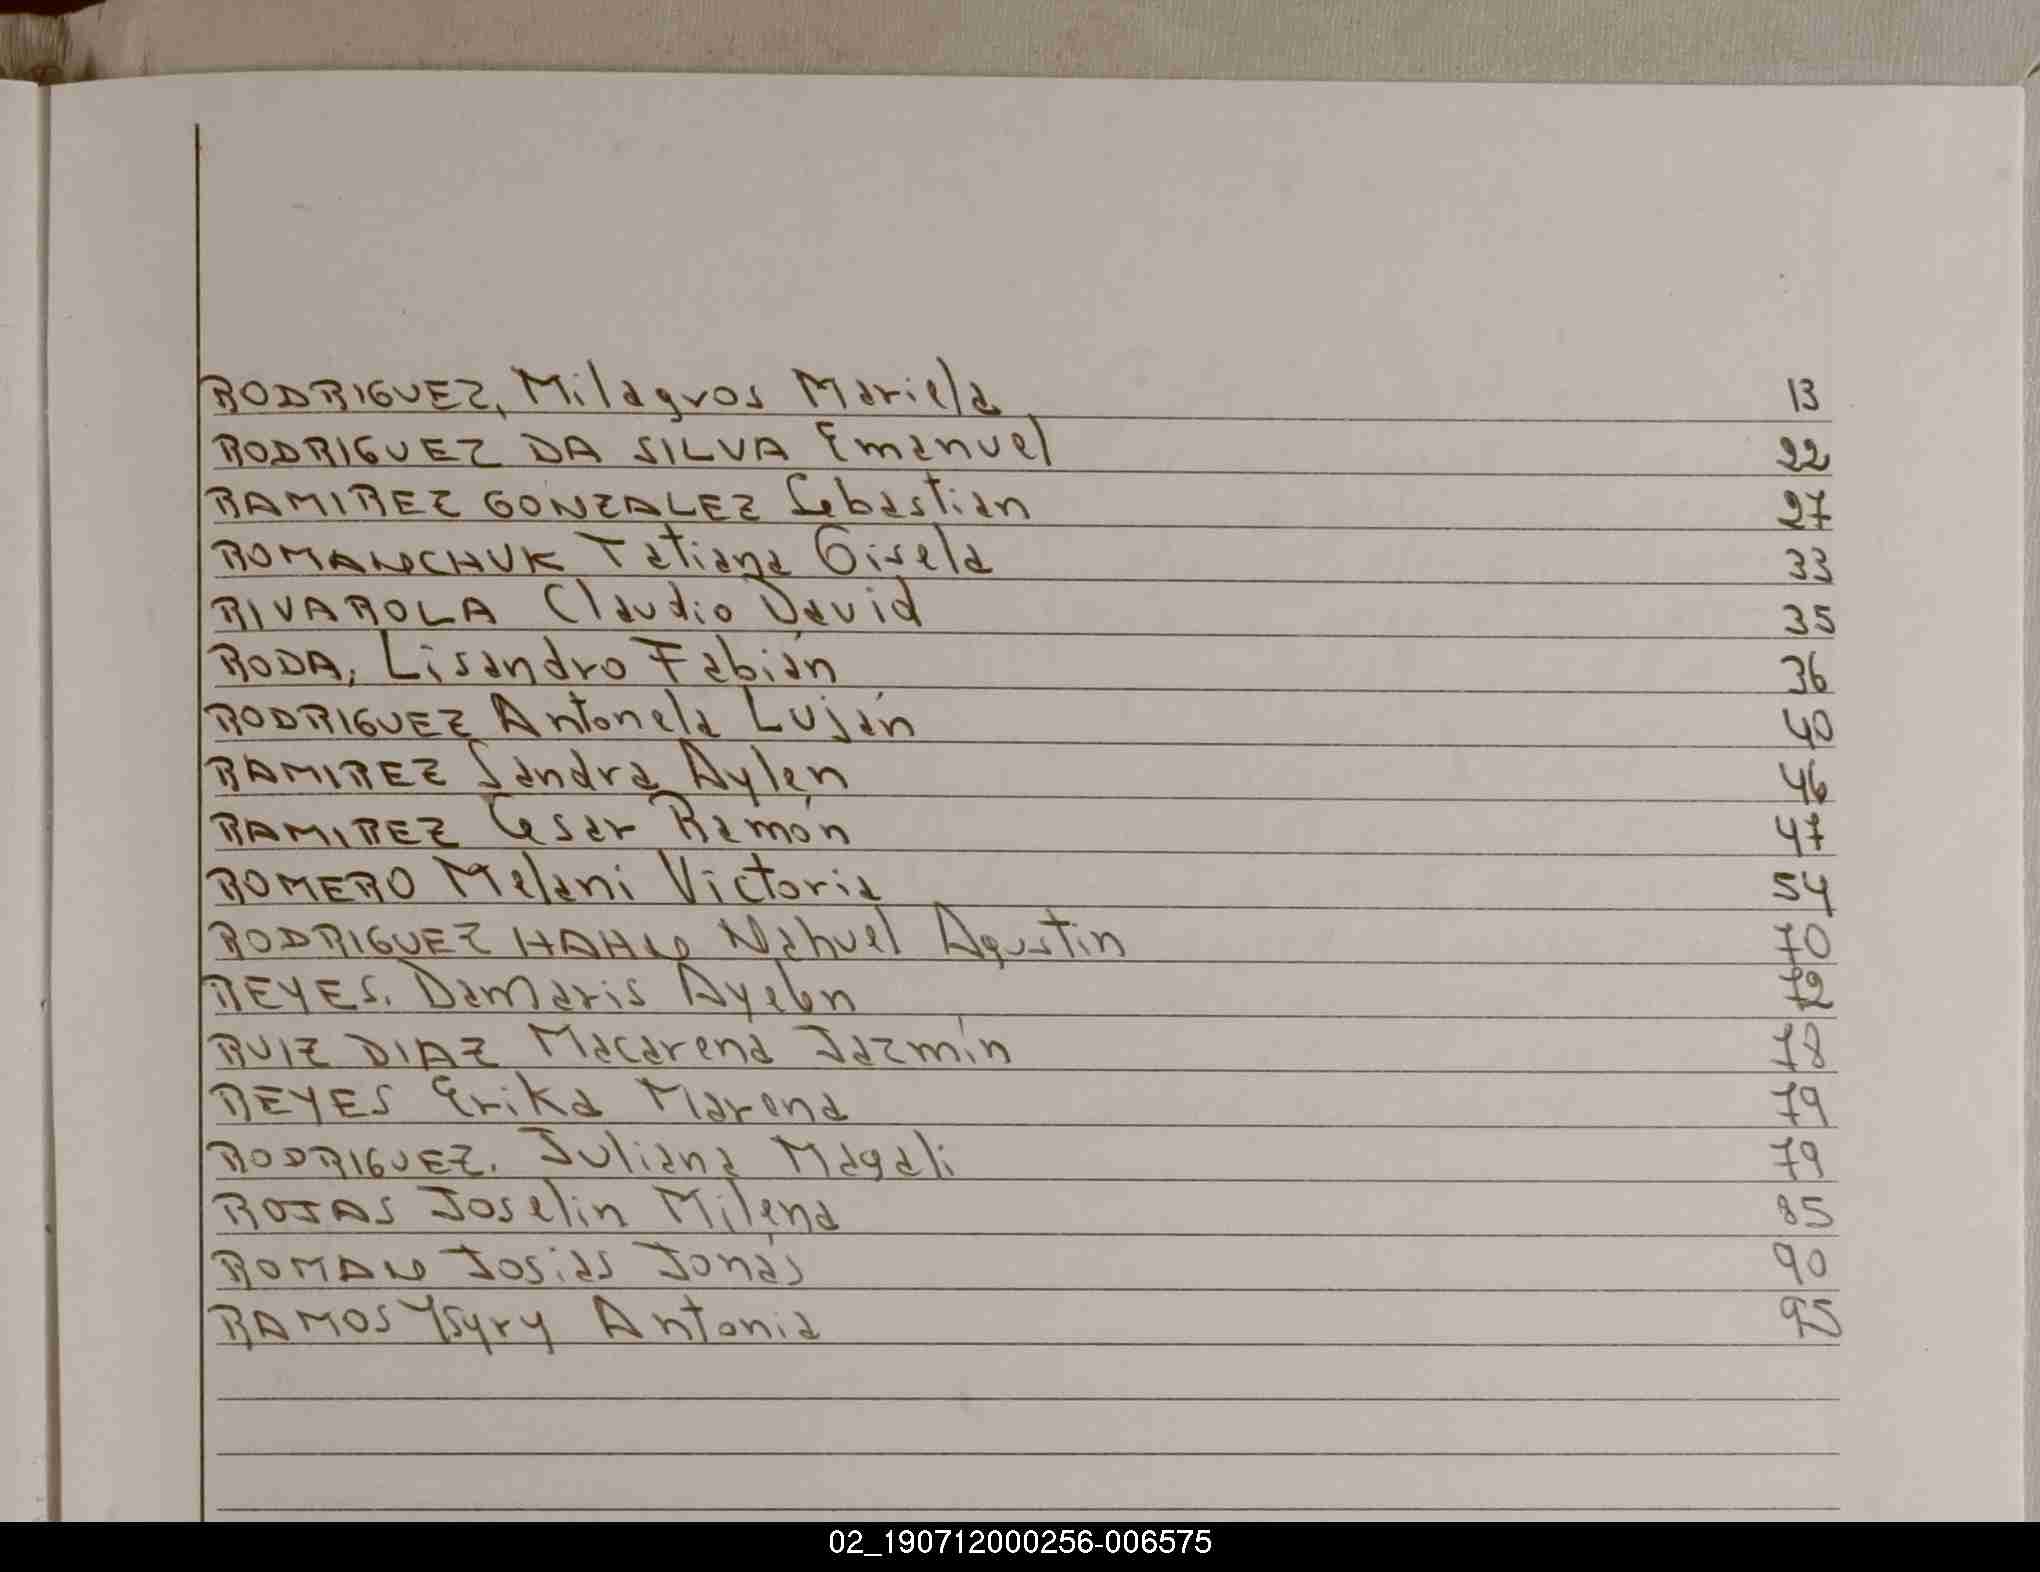 RODRIGUEZ, Milagros Mariela 13
RODRIGUEZ DA SILVA Emanuel 22
RAMIREZ GONZALEZ Sebastian 27
ROMANCHUK Tatiana Gisela 33
RIVAROLA Claudio David 35
RODA, Lisandro Fabián 36
RODRIGUEZ Antonela Luján 40
RAMIREZ Sandra Aylen 46
RAMIREZ Cesar Ramón 47
ROMERO Melani Victoria 54
RODRIGUEZ HAHN Nahuel Agustin 70
REYES, Damaris Ayelen 72
RUIZ DIAZ Macarena Jazmín 78
REYES Erika Marena 79
RODRIGUEZ, Juliana Magali 79
ROJAS Joselin Milena 85
ROMAN Josias Jonás 90
RAMOS Ysyry Antonia 95
02_190712000256-006575